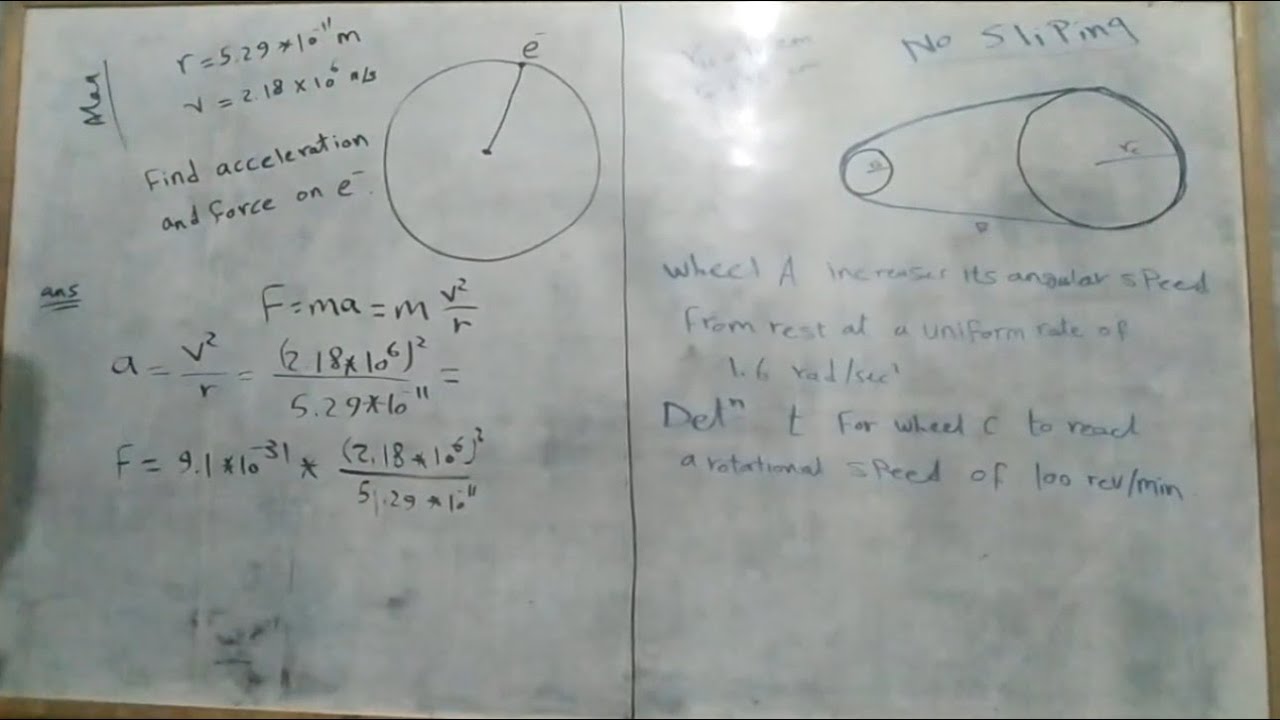 r = 5.29 * 10⁻¹¹ m
v = 2.18 × 10⁶ m/s
e⁻
Find acceleration
and force on e⁻.
ans
F = ma = m v²/r
a = v²/r = (2.18*10⁶)²/5.29*10⁻¹¹ =
F = 9.1*10⁻³¹ * (2.18*10⁶)²/5.29*10⁻¹¹
No Sliping
rc
wheel A increases its angular speed
from rest at a uniform rate of
1.6 rad/sec²
Detⁿ t for wheel C to reach
a rotational speed of 100 rev/min